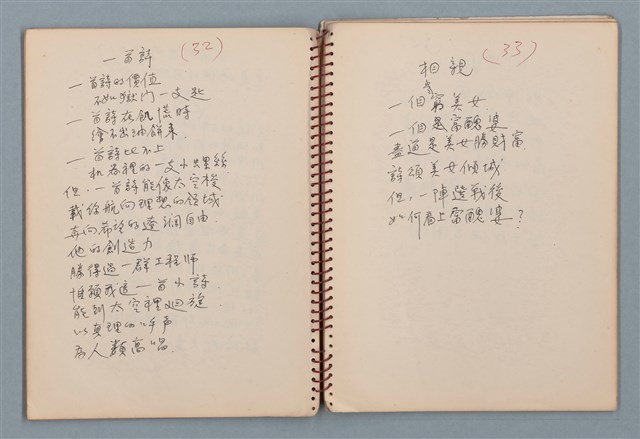 一首詩 (32)
一首詩的價值
不如獄門一支匙
一首詩在飢荒時
繪不出油餅來
一首詩比不上
机器裡的一支小螺絲
但,一首詩能像太空梭
載你航向理想的領域
奔向希望的遼闊自由
他的創造力
勝得過一群工程師
惟願我這一首小詩
能到太空裡迴旋
以真理的呼声
為人類高唱
相親 (33)
一個窮美女
一個是富醜婆
盡道是美女勝財富
詩頌美女傾城
但,一陣選戰後
如何看上富醜婆?